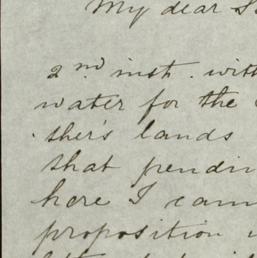 My dear S
2nd inst. with
water for the
ther's lands
that pendin
here I cann
proposition